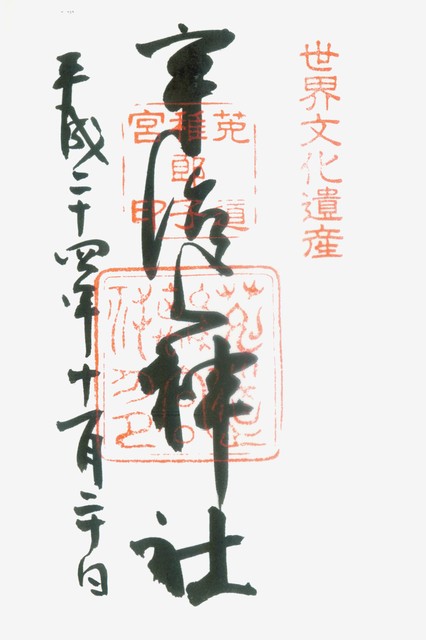 世界文化遺産
宇治上神社
菟道
稚郎子
宮印
平成二十四年十一月二十日